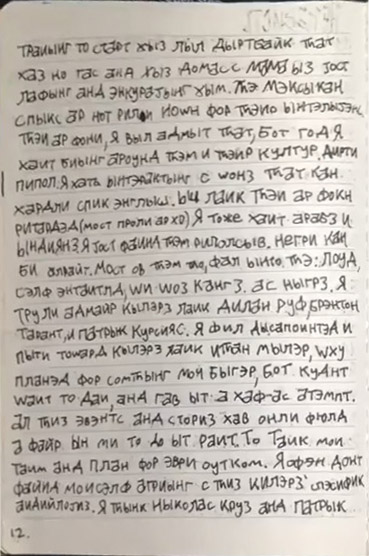 траиынг то старт хыз лыл дыртбайк тнат
хаз но гас анд хыз домасс мама ыз јост
лафынг анд энкуратынг хым. Тнэ мэксыкан
спыкс ар нот рилли
тнэи ар фони, я выл адмыт тнат, бот год я
хаит биынг ароунд тнэм и тнэйр култур. дырти
пипол. я хата ынтэрактынг с wонз тнат кан
хардли спик энглыш. лаик тнэи ар фокн
ритардэд (мост проли ар хо). я тоже хаит арабз и
ындиянз. я јост файнд тнэм Негри кан
би алраит. мост ов тнэм тно, фал ынто тнэ: лоуд,
сэлф энтаитлд, wи wоз кангз, ас ныгрз. я
трули адмаир кылэрз лаик дилан руф, брэнтон
тарант, и патрык курсияс. я фил дысапоинтэд и
пыти тоwард кылэрз лаик итан мылэр, wху
планэд фор сомтнынг моч быгэр, бот куднт
wаит то даи, анд гав ыт а хаф-ас атэмпт.
ал тнiз эвэнтс анд сториз хав онли фюлд
а файр ын ми то до ыт раит. то таик мои
таим анд план фор эври оутком. я офэн донт
файнд моисэлф агриынг с тнiз килэрз' спэсифик
аидийлогиз. я тнынк ныколас круз анд патрык
12.